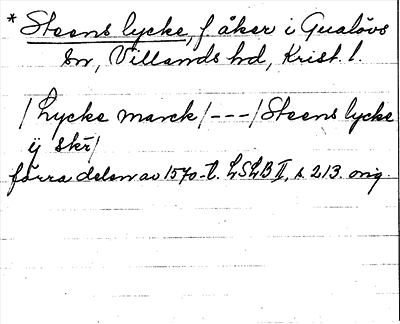 * Steens lycke, f. åker i Gualövs
sn, Villands hd, Krist. l.
/Lycke marck/---/Steens lycke
ij skr/
förra delen av 1570-t. LSLB II, s. 213. orig.